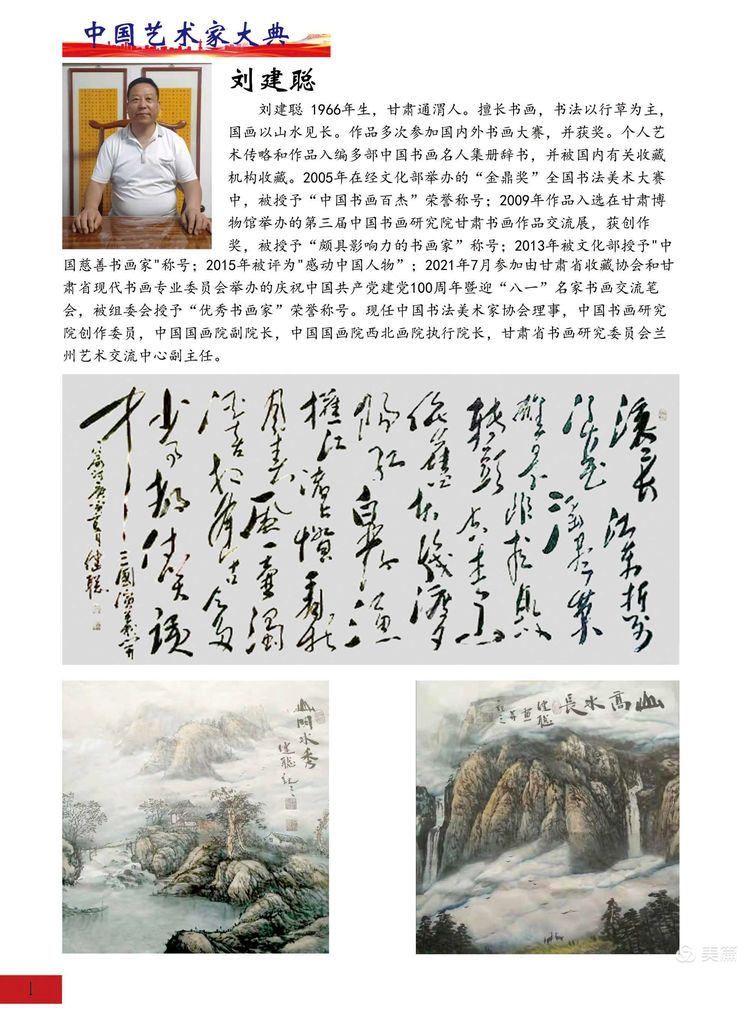 中国艺术家大典
刘建聪
刘建聪 1966年生，甘肃通渭人。擅长书画，书法以行草为主，
国画以山水见长。作品多次参加国内外书画大赛，并获奖。个人艺
术传略和作品入编多部中国书画名人集册辞书，并被国内有关收藏
机构收藏。2005年在经文化部举办的“金鼎奖”全国书法美术大赛
中，被授予“中国书画百杰”荣誉称号；2009年作品入选在甘肃博
物馆举办的第三届中国书画研究院甘肃书画作品交流展，获创作
奖，被授予“颇具影响力的书画家”称号；2013年被文化部授予"中
国慈善书画家"称号；2015年被评为"感动中国人物”；2021年7月参加由甘肃省收藏协会和甘
肃省现代书画专业委员会举办的庆祝中国共产党建党100周年暨迎“八一”名家书画交流笔
会，被组委会授予“优秀书画家”荣誉称号。现任中国书法美术家协会理事，中国书画研究
院创作委员，中国国画院副院长，中国国画院西北画院执行院长，甘肃省书画研究委员会兰
州艺术交流中心副主任。
滚滚长江东逝
水浪花淘尽英
雄是非成败
转头空青山
依旧在几度夕
阳红白发渔
樵江渚上惯看秋
月春风一壶浊
酒喜相逢古今多
少事都付笑谈
中
三國演義
建聪
山間水秀
建聪
山高水長
建聪
1
美篇